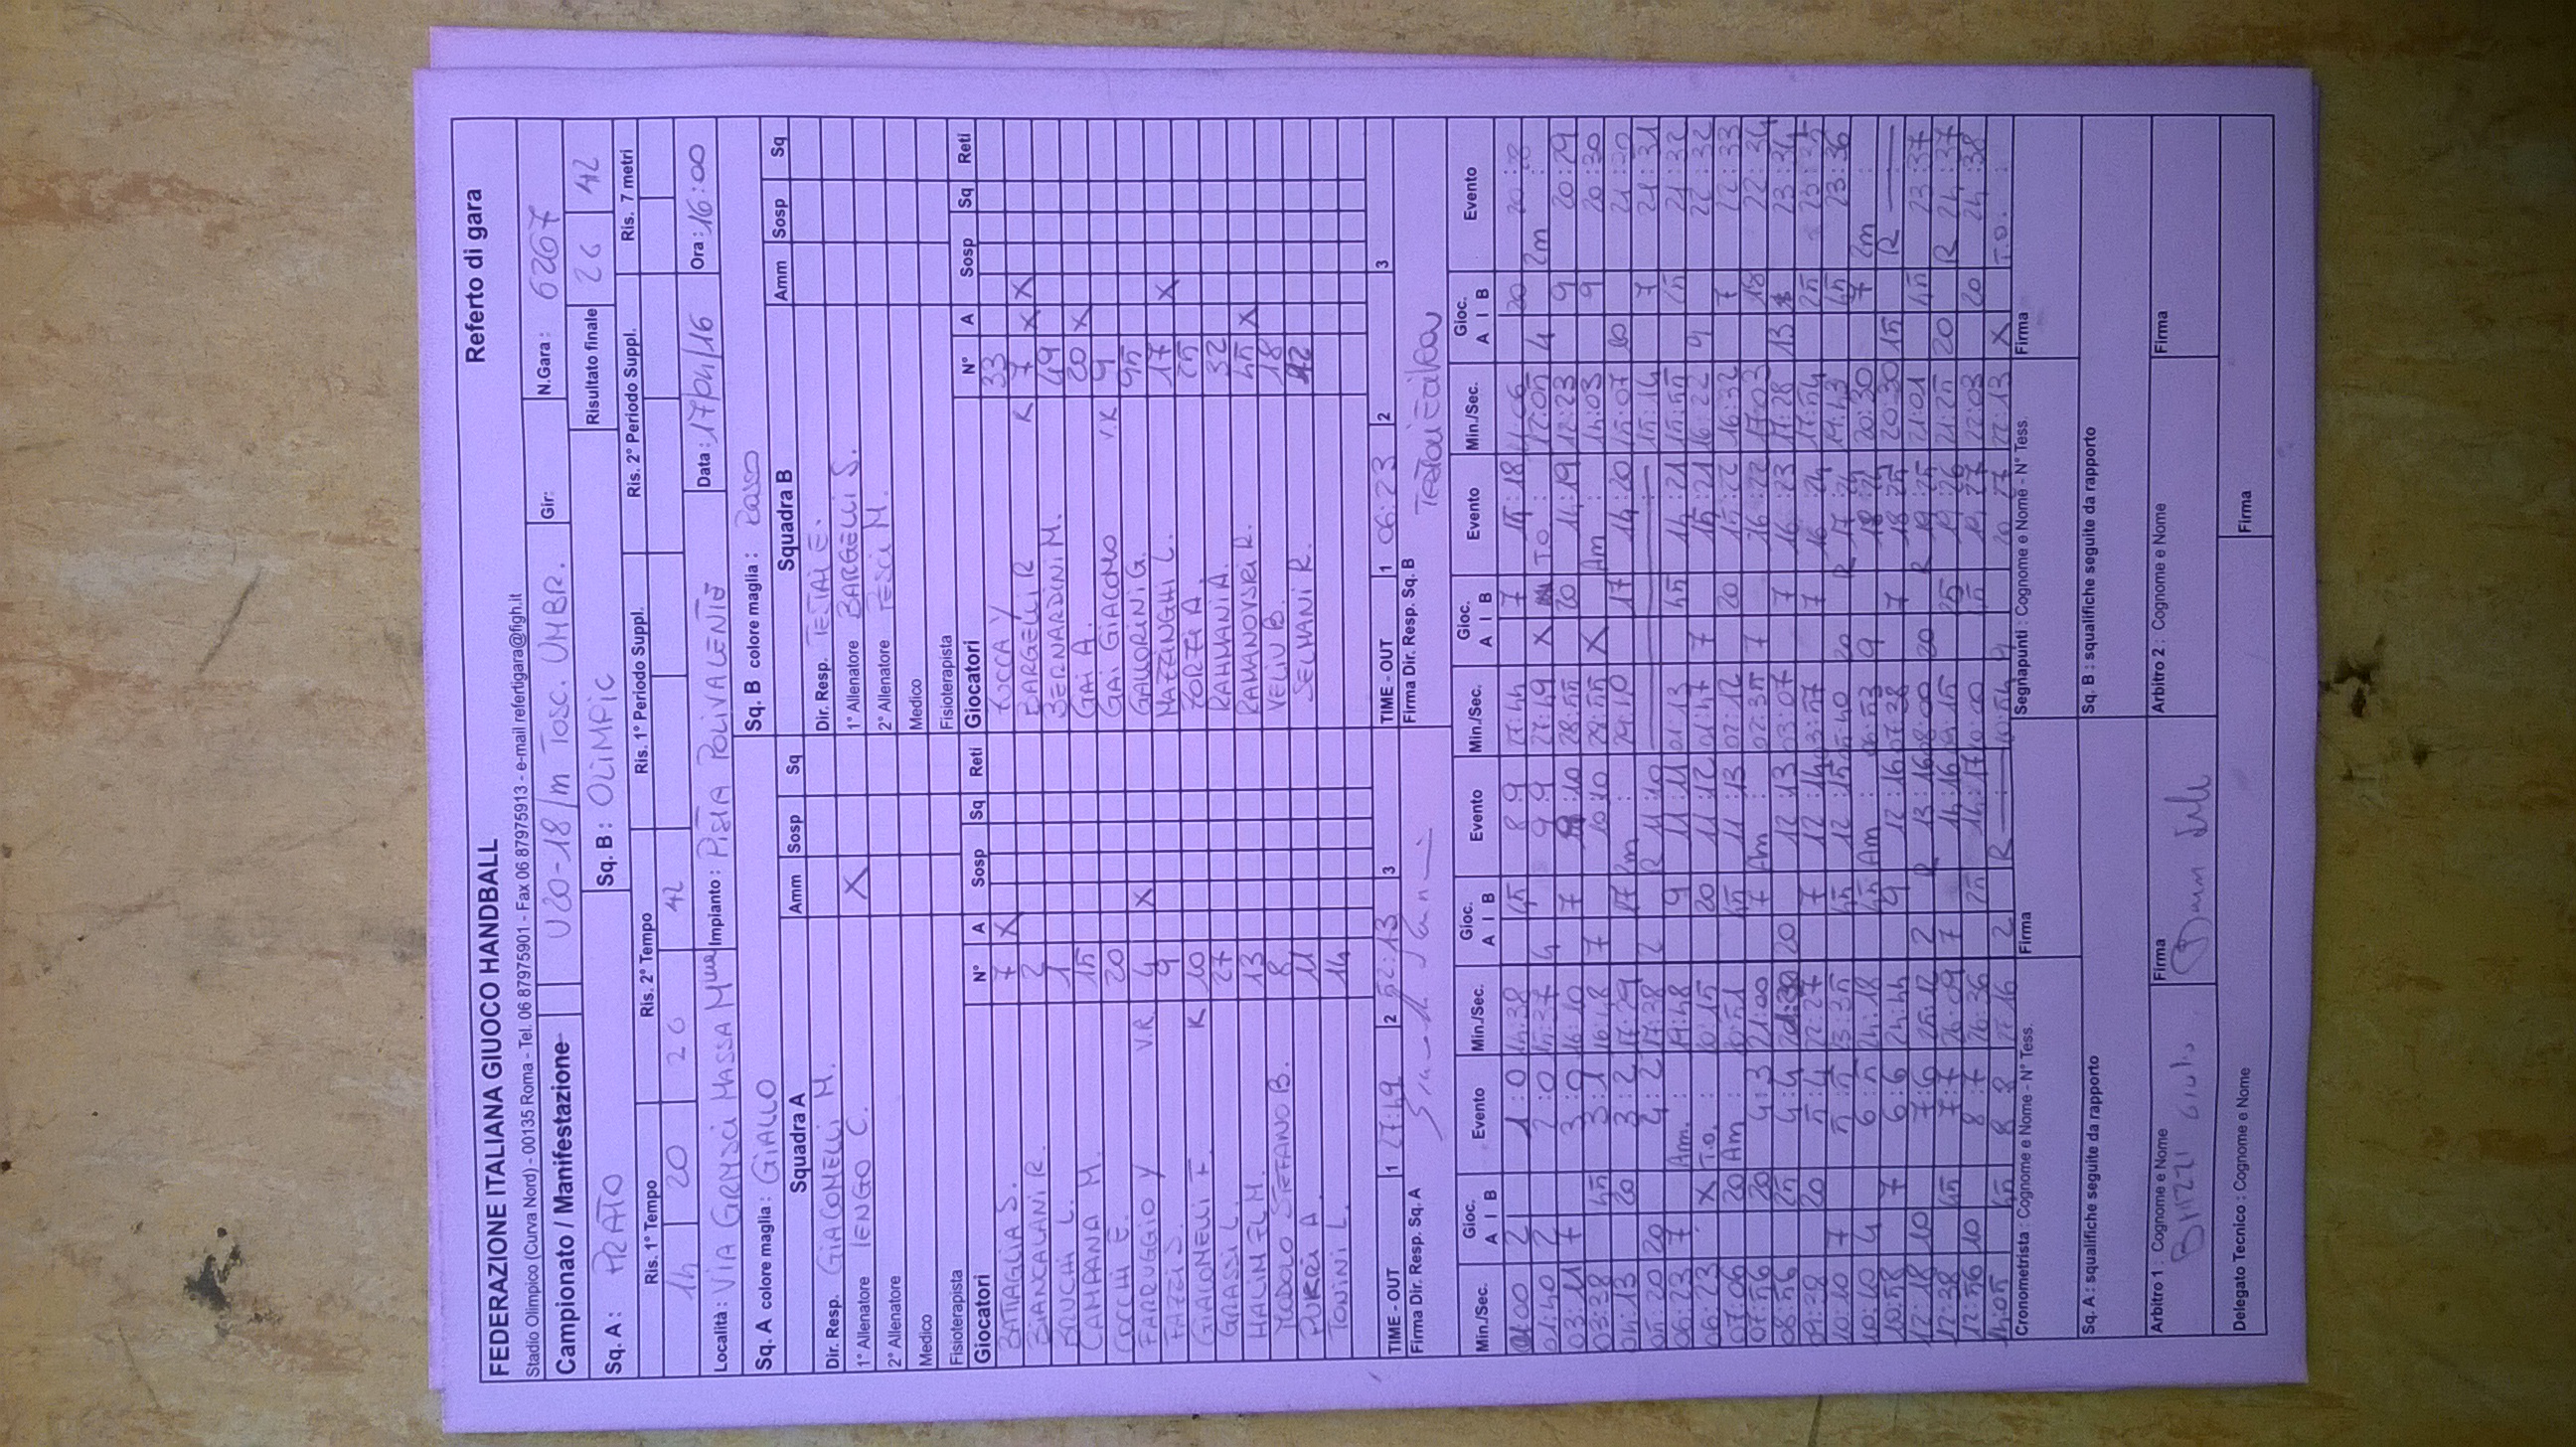 FEDERAZIONE ITALIANA GIUOCO HANDBALL Referto di gara
Stadio Olimpico (Curva Nord) - 00135 Roma - Tel. 06 87975901 - Fax 06 87975913 - e-mail refertigara@figh.it
Campionato / Manifestazione U20-18/m Tosc. UMBR. Gir: N.Gara: 6267
Sq. A: PRATO Sq. B: OLIMPIC Risultato finale 26 42
Ris. 1° Tempo Ris. 2° Tempo Ris. 1° Periodo Suppl. Ris. 2° Periodo Suppl. Ris. 7 metri
14 20 26 42
Località: VIA GRAMSCI MASSA Impianto: PISTA POLIVALENTE Data: 17/04/16 Ora: 16:00
Sq. A colore maglia: GIALLO Sq. B colore maglia: ROSSO
Squadra A Amm Sosp Sq Squadra B Amm Sosp Sq
Dir. Resp. GIACOMELLI M. Dir. Resp. TESTAI E.
1° Allenatore IENGO C. X 1° Allenatore BARGELLI S.
2° Allenatore 2° Allenatore PESCI M.
Medico Medico
Fisioterapista Fisioterapista
Giocatori N° A Sosp Sq Reti Giocatori N° A Sosp Sq Reti
BATTAGLIA S. 7 X ZUCCA Y 33
BIANCALANI R. 2 BARGELLI R K 7 X X
BRUCHI L. 1 BERNARDINI M. 49
CAMPANA M. 15 GAI A. 20 X
COCCHI E. 20 GAI GIACOMO V.K 9
FARRUGGIO Y V.R. 4 X GALLORINI G. 95
FAZZI S. 9 MAZZANGHI L. 17 X
GIACOMELLI F. K 10 ZORZI A. 25
GRASSI L. 27 RAHMANI A. 32
HALIM EL M. 13 RAMANOVSKI R. 45 X
MODOLO STEFANO B. 8 VELIU B. 18
PUKRI A. 11 SELMANI R. 42
TONINI L. 14
TIME - OUT 1 27:49 2 52:13 3 TIME - OUT 1 06:23 2 3
Firma Dir. Resp. Sq. A Firma Dir. Resp. Sq. B
Min./Sec. Gioc. A I B Evento Min./Sec. Gioc. A I B Evento Min./Sec. Gioc. A I B Evento Min./Sec. Gioc. A I B Evento
00 2 1:0 14:38 45 8 9 27:44 7 14:18 11:06 20 20:28
01:40 2 2:0 15:37 4 9 9 27:49 X TO 12:05 4 2m
03:11 7 3:0 16:10 7 9:10 28:55 20 14:19 12:23 9 20:29
03:38 45 3:1 16:48 7 10 10 28:55 X Am 14:03 9 20:30
04:13 20 3:2 17:29 17 2m 29:10 17 14:20 15:07 10 21:30
05:20 20 4:2 17:38 2 R 11:10 15:14 7 21:31
06:23 7 Am. 19:48 9 11:11 01:13 45 14:21 15:55 25 21:32
06:23 X T.O. 20:15 20 11:12 01:47 7 15:21 16:22 9 22:32
07:06 20 Am 20:51 45 11:13 02:12 20 15:22 16:32 7 22:33
07:56 20 4:3 21:00 7 Am 02:35 7 16:22 17:03 18 22:34
08:56 25 4:4 20 12:13 03:07 7 16:23 17:28 13 23:34
09:28 20 5:4 22:27 7 12:14 03:57 7 16:24 17:54 25 23:35
10:10 7 5:5 23:35 45 12:15 05:40 20 R 17:24 19:43 45 23:36
10:40 4 6:5 24:18 45 Am 06:53 9 18:24 20:30 7 2m
10:58 7 6:6 24:44 9 12:16 07:38 7 18:25 20:30 15 R
12:18 10 7:6 25:12 2 R 13:16 08:00 20 R 19:25 21:01 45 23:37
12:38 45 7:7 26:09 7 14:16 09:15 25 19:26 21:25 20 R 24:37
12:56 10 8:7 26:36 25 14:17 10:00 19:27 22:03 20 24:38
14:05 45 8 8 27:16 2 R 10:54 9 20 27 22:13 X T.O.
Cronometrista : Cognome e Nome - N° Tess. Firma Segnapunti : Cognome e Nome - N° Tess. Firma
Sq. A : squalifiche seguite da rapporto Sq. B : squalifiche seguite da rapporto
Arbitro 1 : Cognome e Nome Firma Arbitro 2 : Cognome e Nome Firma
Delegato Tecnico : Cognome e Nome Firma